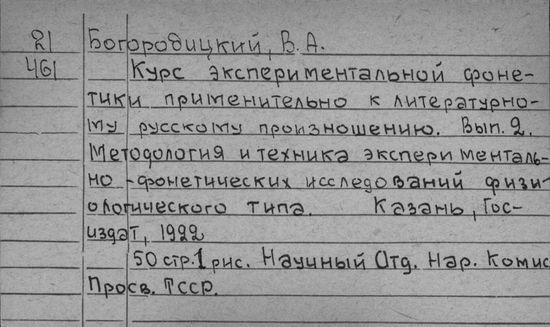 21 Богородицкий, В.А.
461 Курс экспериментальной фоне-
тики применительно к литературно-
му русскому произношению. Вып. 2.
Методология и техника эксперименталь-
но-фонетических исследований физи-
ологического типа. Казань, Гос-
издат, 1922
50 стр. 1 рис. Научный Отд. Нар. Комис
Просв. ТССР.